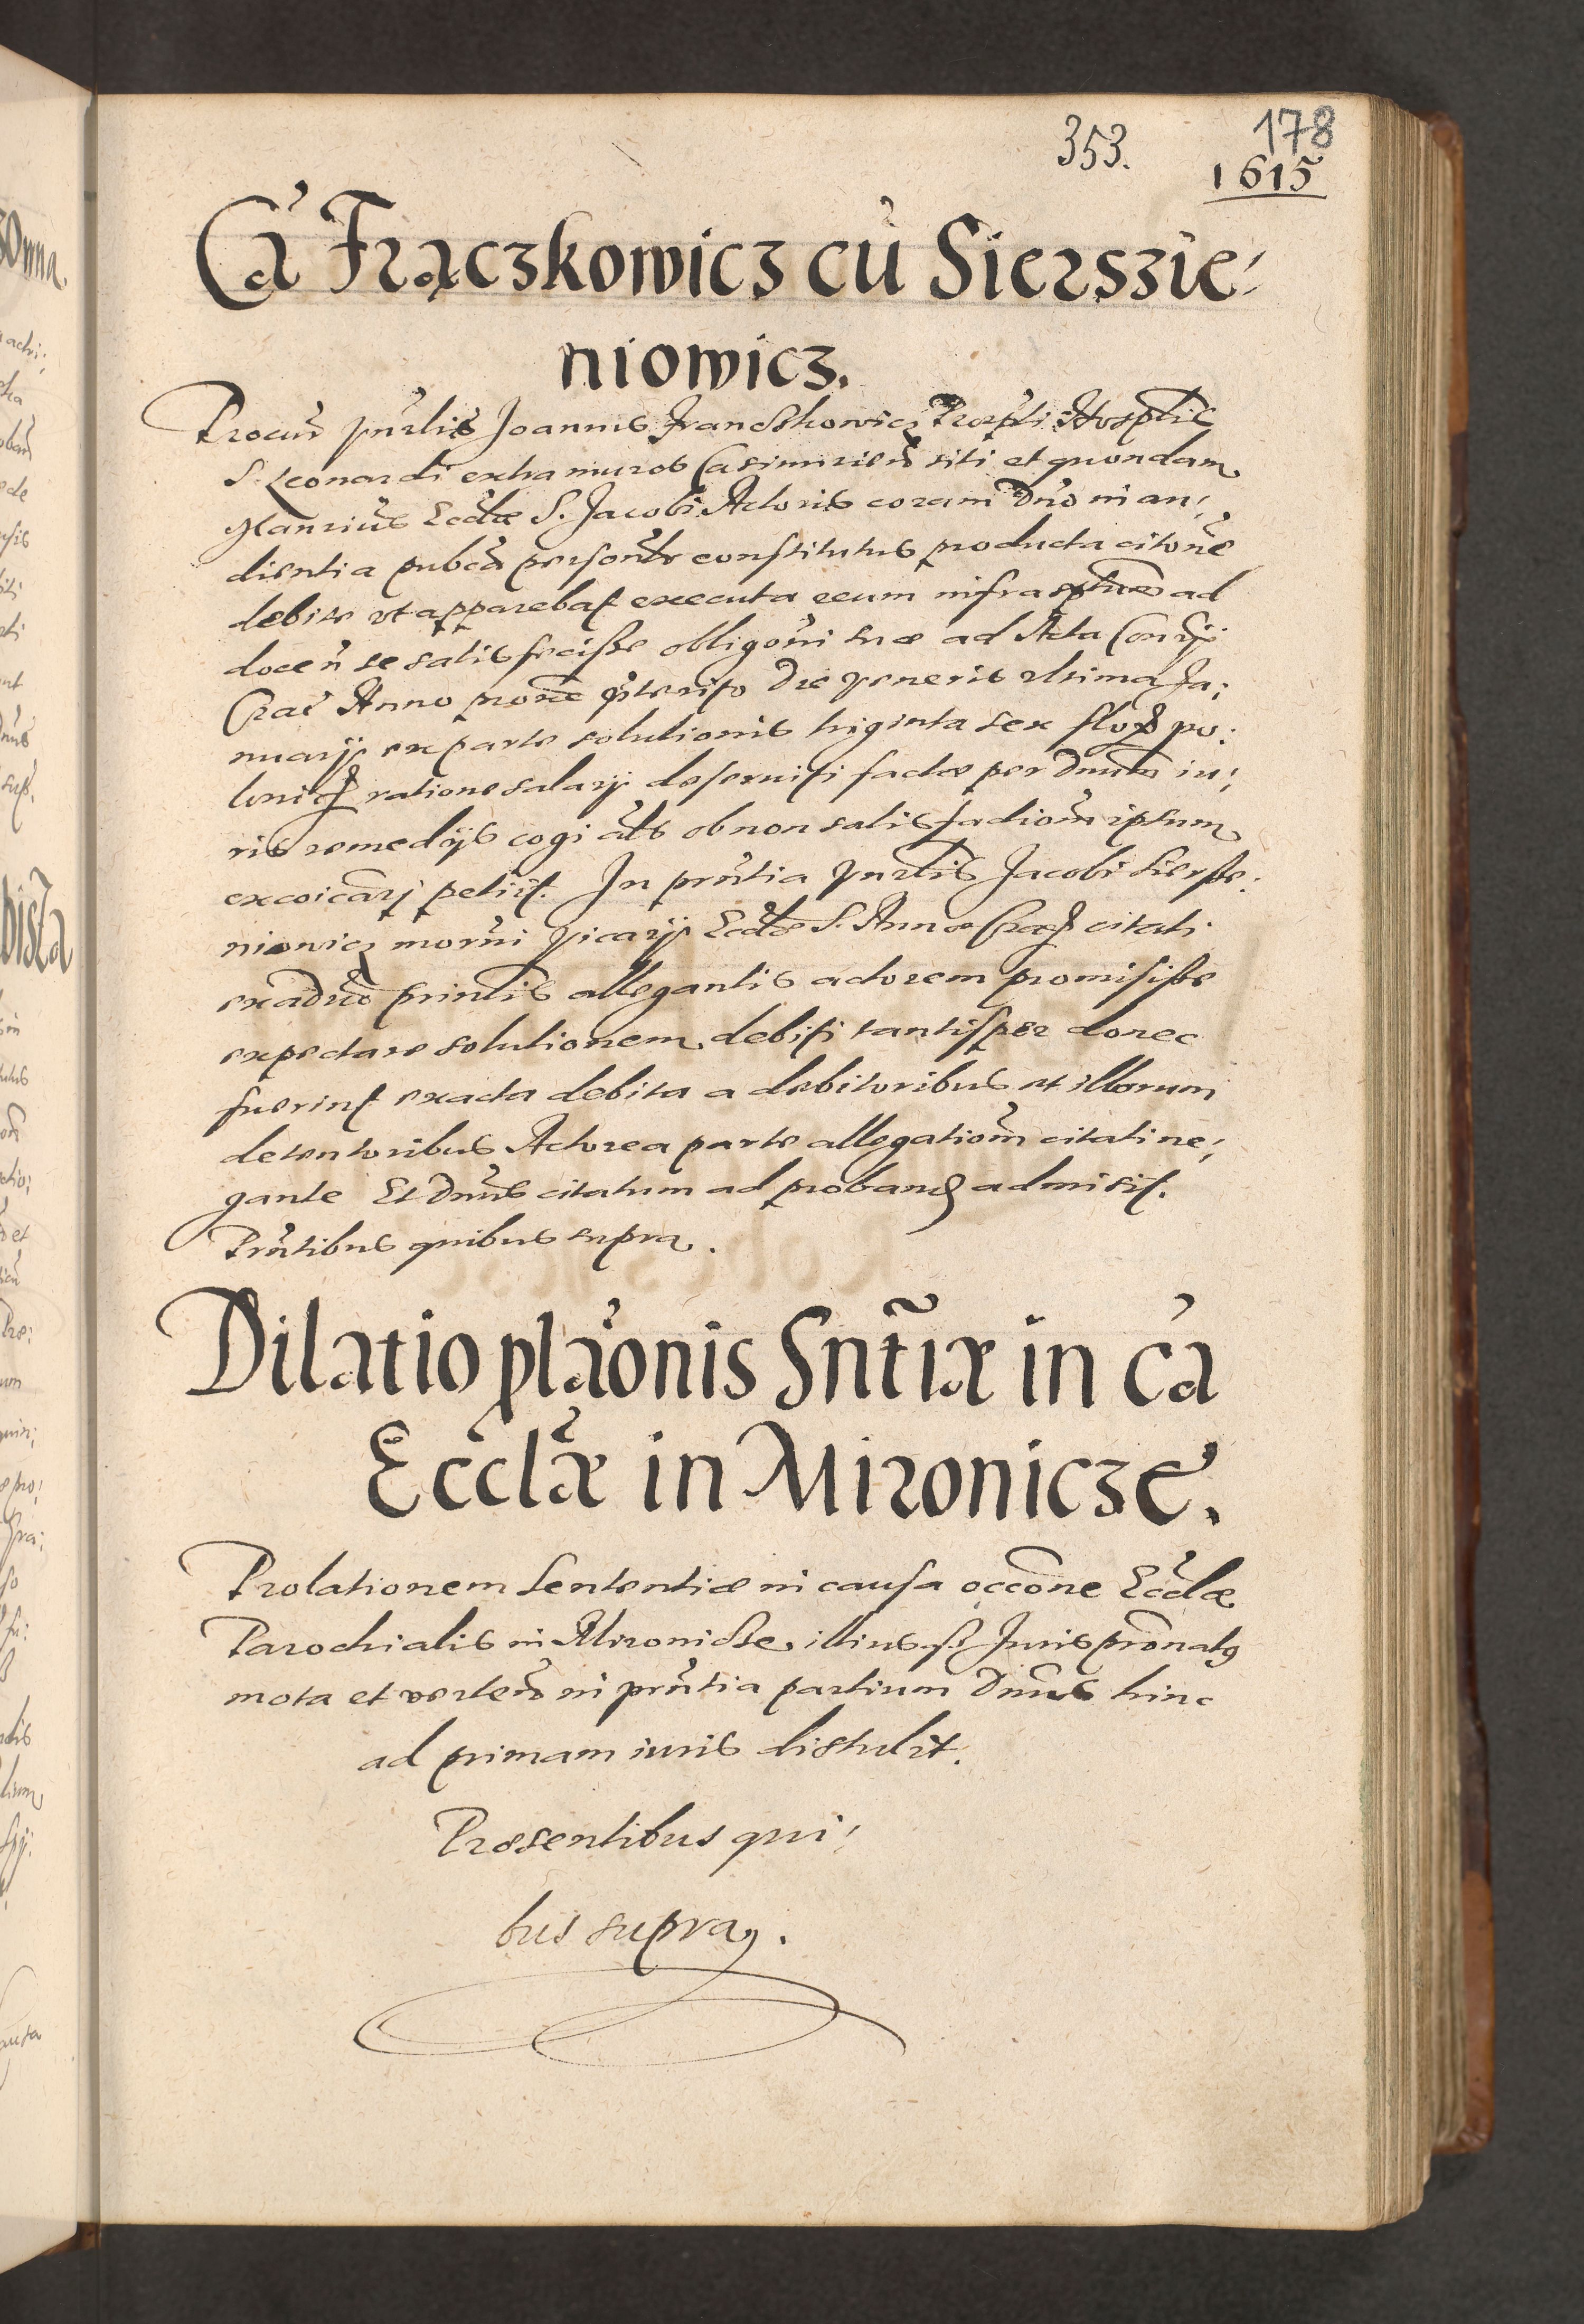 353.
178
1615
Ca Frączkowicz cu Sierszie
niowicz.
Procur Joannis Franczkowicz Hosplis
S. Leonardi extra muros Casimirien siti et quondam
Eccliae S. Jacobi Actoris coram Dno in au
dientia publca personlr constitutus producta citone
debite vt apparebat executa eum infra ad
docen se satisfecisse obligoni suae ad Acta
Crac Anno proxe prterito Die Veneris vltima Ja
nuarij ex parte solutionis triginta sex flor po
lonic ratione salarij deseruiti factae per Dnum iu
ris remedijs cogi als ob non satisfactiom ipsum
excoicarj petijt. In prntia Jacobi Siersze
niowicz moderni Vicarij Eccliae S. Annae Crac citati
ex aduo principlis allegantis actorem promisisse
expectare solutionem debiti tantisper donec
fuerint exacta debita a debitoribus et illorum
detentoribus Actorea parte allegatiom citati ne
gante Et Dnus citatum ad proband admisit.
Prntibus quibus supra.
Dilatio plaonis Sntiae in ca
Ecclae in Mironicze.
Prolationem Sententiae in causa occone Ecclae
Parochialis in Mironicze, illius Juris pronatus
mota et verten in prntia partium Dnus hinc
ad primam iuris distulit.
Praesentibus qui
bus supra.